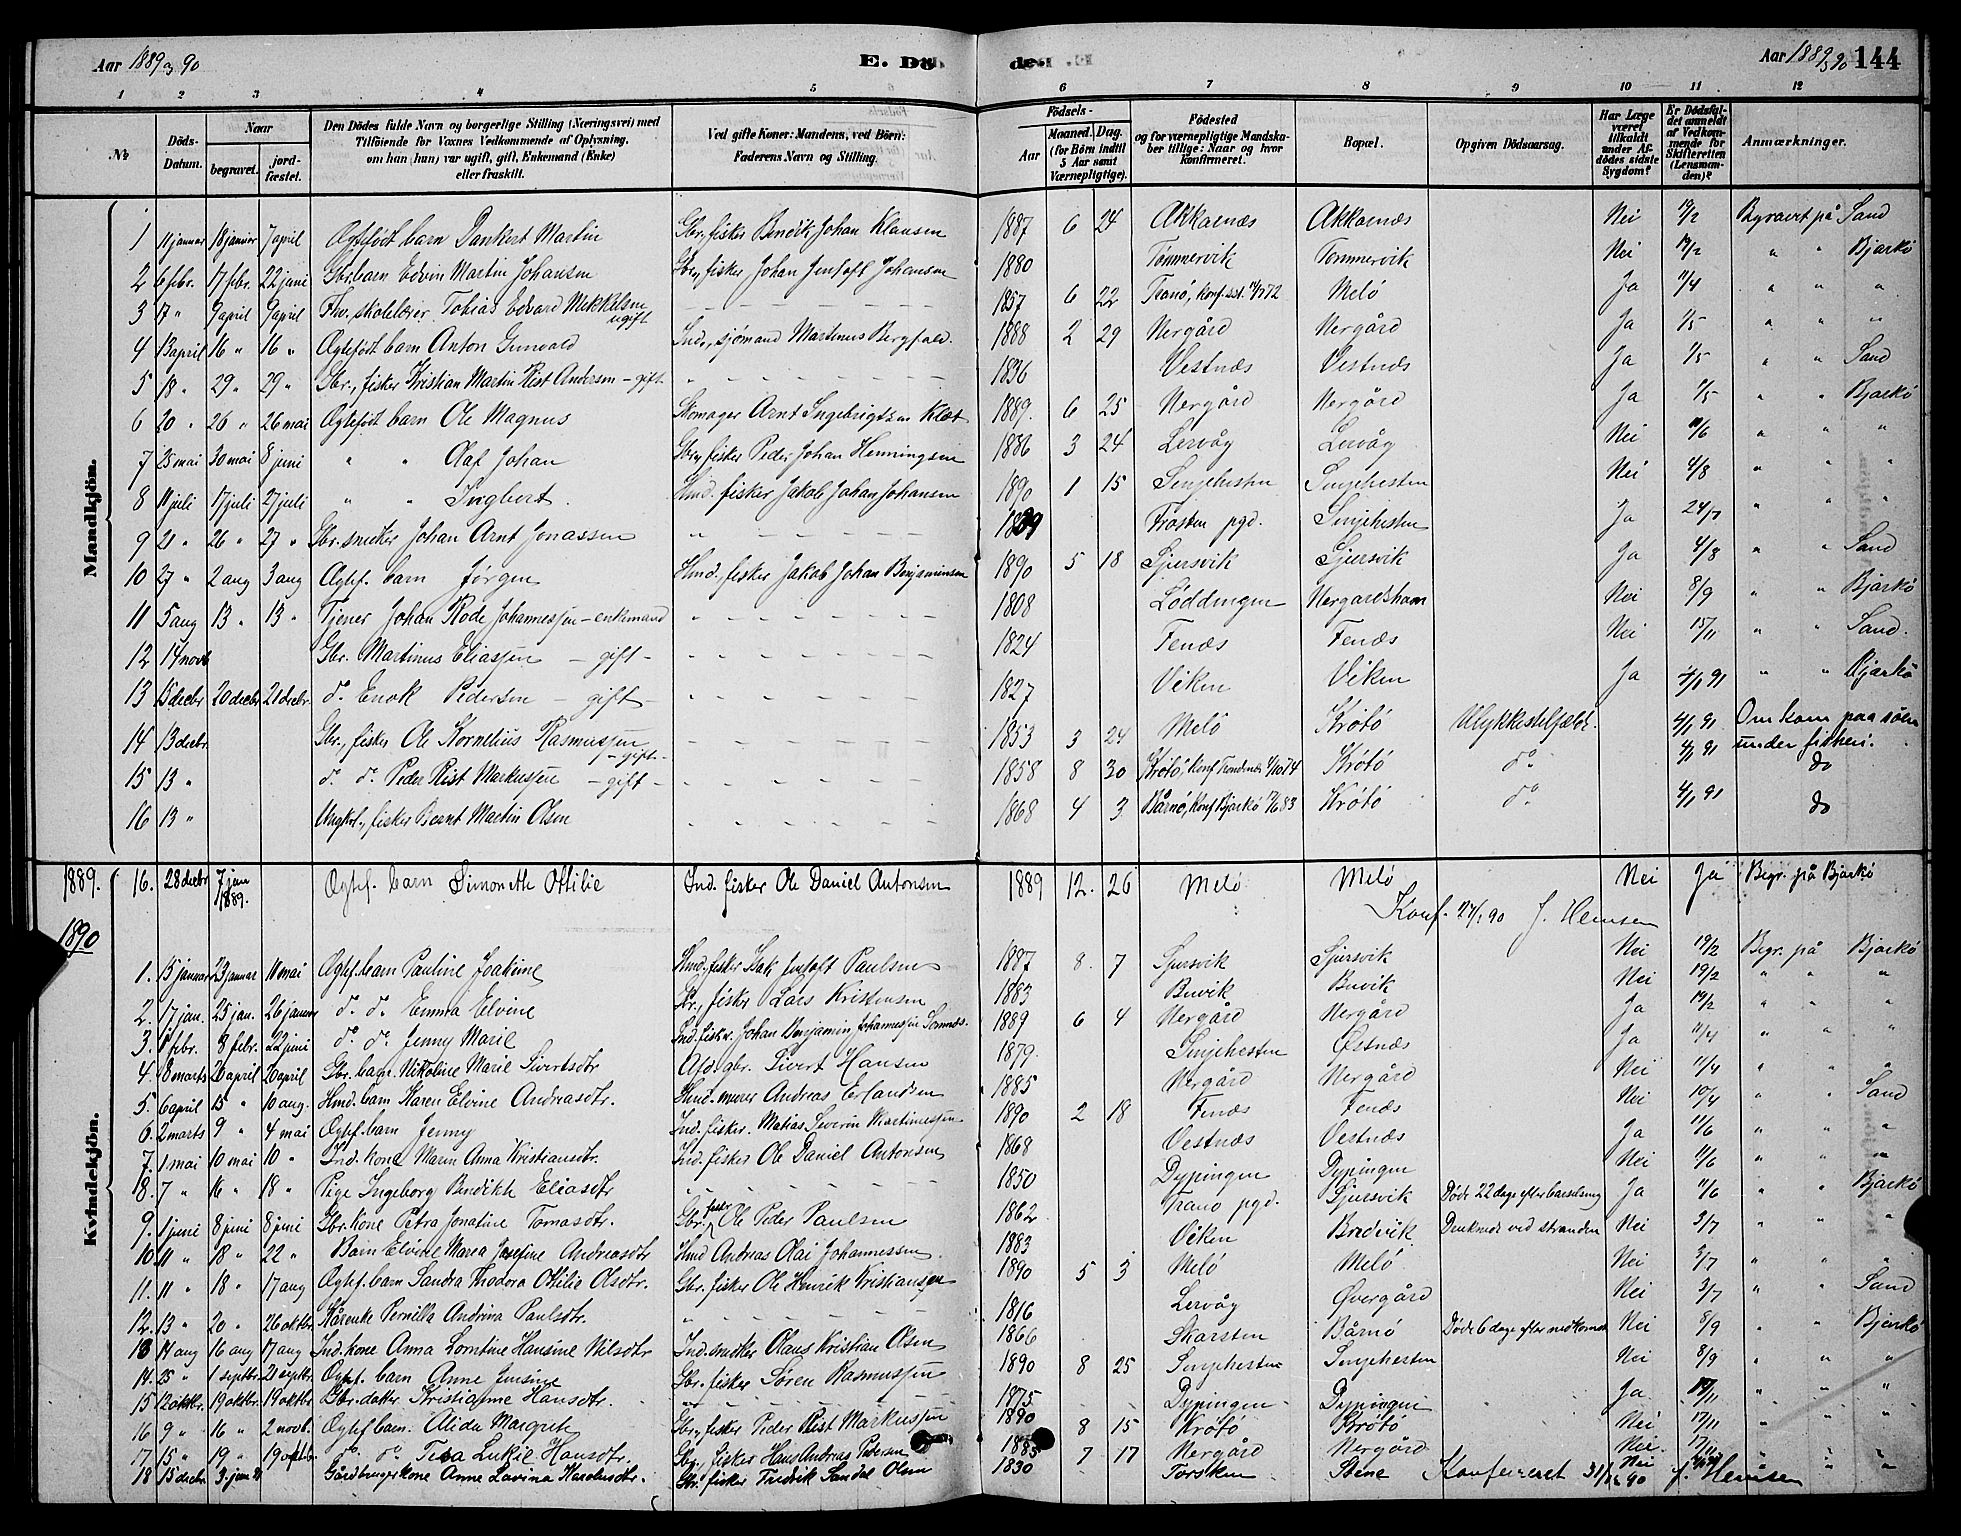 Aar 1889 & 90
E. Döde.
Aar 1889 & 90 144
1 2 3 4 5 6 7 8 9 10 11 12
No
Döds-Datum.
Naar
begravet.
jordfæstet.
Den Dödes fulde Navn og borgerlige Stilling (Næringsvei) med
Tilföiende for Voxnes Vedkommende af Oplysning,
om han (hun) var ugift, gift, Enkemand (Enke)
eller fraskilt.
Ved gifte Koner: Mandens, ved Börn:
Faderens Navn og Stilling.
Födsels-
Aar
Maaned. Dag.
(for Börn indtil
5 Aar samt
Værnepligtige).
Födested
og for værnepligtige Mandska-
ber tillige: Naar og hvor
Konfirmeret.
Bopæl.
Opgiven Dödsaarsag.
Har Læge
været
tilkaldt
under Af-
dödes sidste
Sygdom?
Er Dödsfal-
det anmeldt
af Vedkom-
mende for
Skifteretten
(Lensman-
den)?
Anmærkninger.
Mandkjön.
1 11 januar 18 januar 7 april Ægtefødt barn Dankert Martin Gbr., fisker Bendik Johan Klausen 1887 6 24 Akkarnæs Akkarnæs Nei 19/2 Begravet på Sand
2 6 febr. 17 febr. 22 juni Gbr. barn Edvin Martin Johansen Gbr., fisker Johan Jentoft Johansen 1880 Tømmervik Tømmervik Nei 19/2 " " Bjarkö
3 17 " 9 april 9 april Fhv. skolelærer Tobias Edvard Mikkelsen ugift 1857 6 22 Tranö, Konf. Melö Ja 11/4 " " "
4 13 april 16 " 16 " Ægtefødt barn Anton Gunvald Ind., sjømand Martinus Bergfald. 1888 2 29 Nergård Nergård Ja 1/5 " " "
5 18 " 29 " 29 " Gbr., fisker Kristian Martin Rist Andersen - gift - 1836 Vestnæs Vestnæs Ja 1/5 " " Sand
6 20 " 26 " 26 mai Ægtefødt barn Ole Magnus Skomager Arnt Ingebrigtsen Klæt 1889. 6 25 Nergård Nergård Ja 1/5 " " Bjarkö
7 25 mai 30 mai 8 juni " " Olaf Johan Gbr., fisker Peder Johan Henningsen 1886 3 24 Lervåg Lervåg Nei 11/6 " " "
8 11 juli 17 juli 27 juli " " Ingbert. Hmd. fisker Jakob Johan Johansen 1890 1 15 Senjehesten Senjehesten Nei 4/8 " " "
9 21 " 26 " 27 " Gbr. snedker Johan Arnt Jonassen 1839 Frosten pgd. Senjehesten Ja 24/7 " " "
10 27 " 2 aug 3 aug Ægtef. barn Jørgen Hmd., fisker Jakob Johan Benjaminsen 1890 5 18 Sjursvik Sjursvik Ja 4/8 " " Sand
11 5 aug 13 " 13 " Tjener Johan Rode Johannessen - enkemand 1808 Løddingen Nergardshavn Nei 8/9 " " Bjarkö
12 14 novb Gbr. Martinus Eliassen - gift - 1824 Fenæs Fenæs Nei 15/11 " " Sand.
13 15 decbr 20 decbr 21 decbr. do Enok Pedersen - gift - 1827 Viken Viken Ja 4/1 91 " " Bjarkö
14 13 decbr. Gbr., fisker Ole Kornelius Rasmussen - gift - 1853 3 24 Melö Krötö Ulykkestilfælde. 4/1 91 Omkom paa söen under fiskeri.
15 13 " do do Peder Rist Markussen - gift - 1858 8 30 Krötö, Konf. Trondenæs 4/10 74 Krötö do 4/1 91 do
16 13 " Ungkl., fisker Bernt Martin Olsen 1868 4 3 Bårnö, Konf. Bjarkö 17/6 83 Krötö do 4/1 91 do
1889. 16. 28 decbr 7 jan 1889. Ægtef. barn Simonette Ottilie Ind. fisker Ole Daniel Antonsen 1889 12. 26 Melö Melö Nei Ja Begr. på Bjarkö
Konf. 27/1 90 J. Hemsen
1890
Kvindekjön.
1. 15 januar 23 januar 11 mai Ægtef. barn Pauline Joakime Hmd. fisker Isak Jentoft Paulsen 1887 8. 7 Sjursvik Sjursvik Nei 19/2 Begr. på Bjarkö
2. 17 jan. 25 jan. 26 januar do do Emma Elvine Gbr., fisker Lars Kristensen 1883 Buvik Buvik Nei 19/2 " " "
3. 1 febr. 8 febr. 22 juni do do Jenny Marie Ind. fisker Johan Benjamin Johannessen 1889 6 4 Nergård Nergård Ja 19/2 " " "
4. 8 marts 20 april 20 april Gbr. barn. Nikoline Marie Sivertsdtr. Afd. gbr. Sivert Hansen 1879. Senjehesten Östnæs Ja 11/4 " " "
5. 6 april 15 " 10 aug. Hmd. barn Karen Elvine Andreasdtr. Hmd. murer Andreas Erlandsen 1885 Nergård Nergård Nei 11/4 " " "
6. 2 marts 9 " 4 mai Ægtef. barn Jenny Ind. fisker. Matias Severin Martinussen 1890 2 18 Fenæs Fenæs Nei 10/4 " " Sand
7. 1 mai 10 mai 10 " Ind. kone Maren Anna Kristiansdtr. Ind. fisker Ole Daniel Antonsen 1868 Vestnæs Vestnæs Ja 11/6 " " "
8. 7 " 16 " 18 " Pige Ingeborg Bendikte Eliasdtr 1850 Dypingen Dypingen Nei 11/6 " " "
9. 1 juni 8 juni 8 juni Gbr. kone Petra Jonatine Tomasdtr. Gbr. fisker Ole Peder Paulsen 1862 Tranö pgd. Sjursvik Døde 22 dage efter barselseng Ja 11/6 " " Bjarkö
10. 11 " 18 " 22 " Barn Elvine Marea Josefine Andreasdtr Hmd Andreas Olai Johannessen. 1883 Viken Bredvik Druknede ved stranden Nei 3/7 " " "
11. 11 " 18 " 17 aug Ægtef. barn Sandra Thodora Ottilie Olsdtr. Gbr. fisker Ole Henrik Kristiansen 1890 5 3 Melö Melö Nei 3/7 " " "
12. 13 " 20 " 26 oktbr. Kårenke Pernilla Andrina Paulsdtr. 1816 Lervåg Övergård Nei 3/7 " " Sand
13 14 aug 16 aug 17 aug Ind. kone Anna Lorntine Hansine Nilsdtr Ind. snedker Olaus Kristian Olsen 1866 Skarsten Bårnö Døde 6 dage efter nedkomst Nei 8/9 " " Bjarkö
14. 25 " 1 septbr. 21 septbr. Ægtef. barn Anne Jensine Gbr. fisker Sören Rasmussen 1890 8 25 Senjehesten Senjehesten Nei 8/9 " " "
15 12 oktbr. 19 oktbr. 19 oktbr Gbr. datter Kristianne Hansdtr. 1875 Dypingen Dypingen Ja 17/11 " " "
16 9 " 16 " 2 novb. Ægtef. barn. Alida Margrete Gbr., fisker Peder Rist Markussen 1890 8 15 Krötö Krötö Nei 17/11 " " "
17 15 " 19 " 19 oktb. do do Tea Lukie Hansdtr. Gbr., fisker Hans Andreas Pedersen 1885 7 17 Nergård Nergård Nei 17/11 " " "
18 15 decbr 3 jan Gårdbrugerkone Anne Lovina Karolusdtr. Gbr. fisker Fredrik Sandal Olsen 1830 Torsken Stene Nei " " "
Konfereret 31/12 90 J. Hemsen